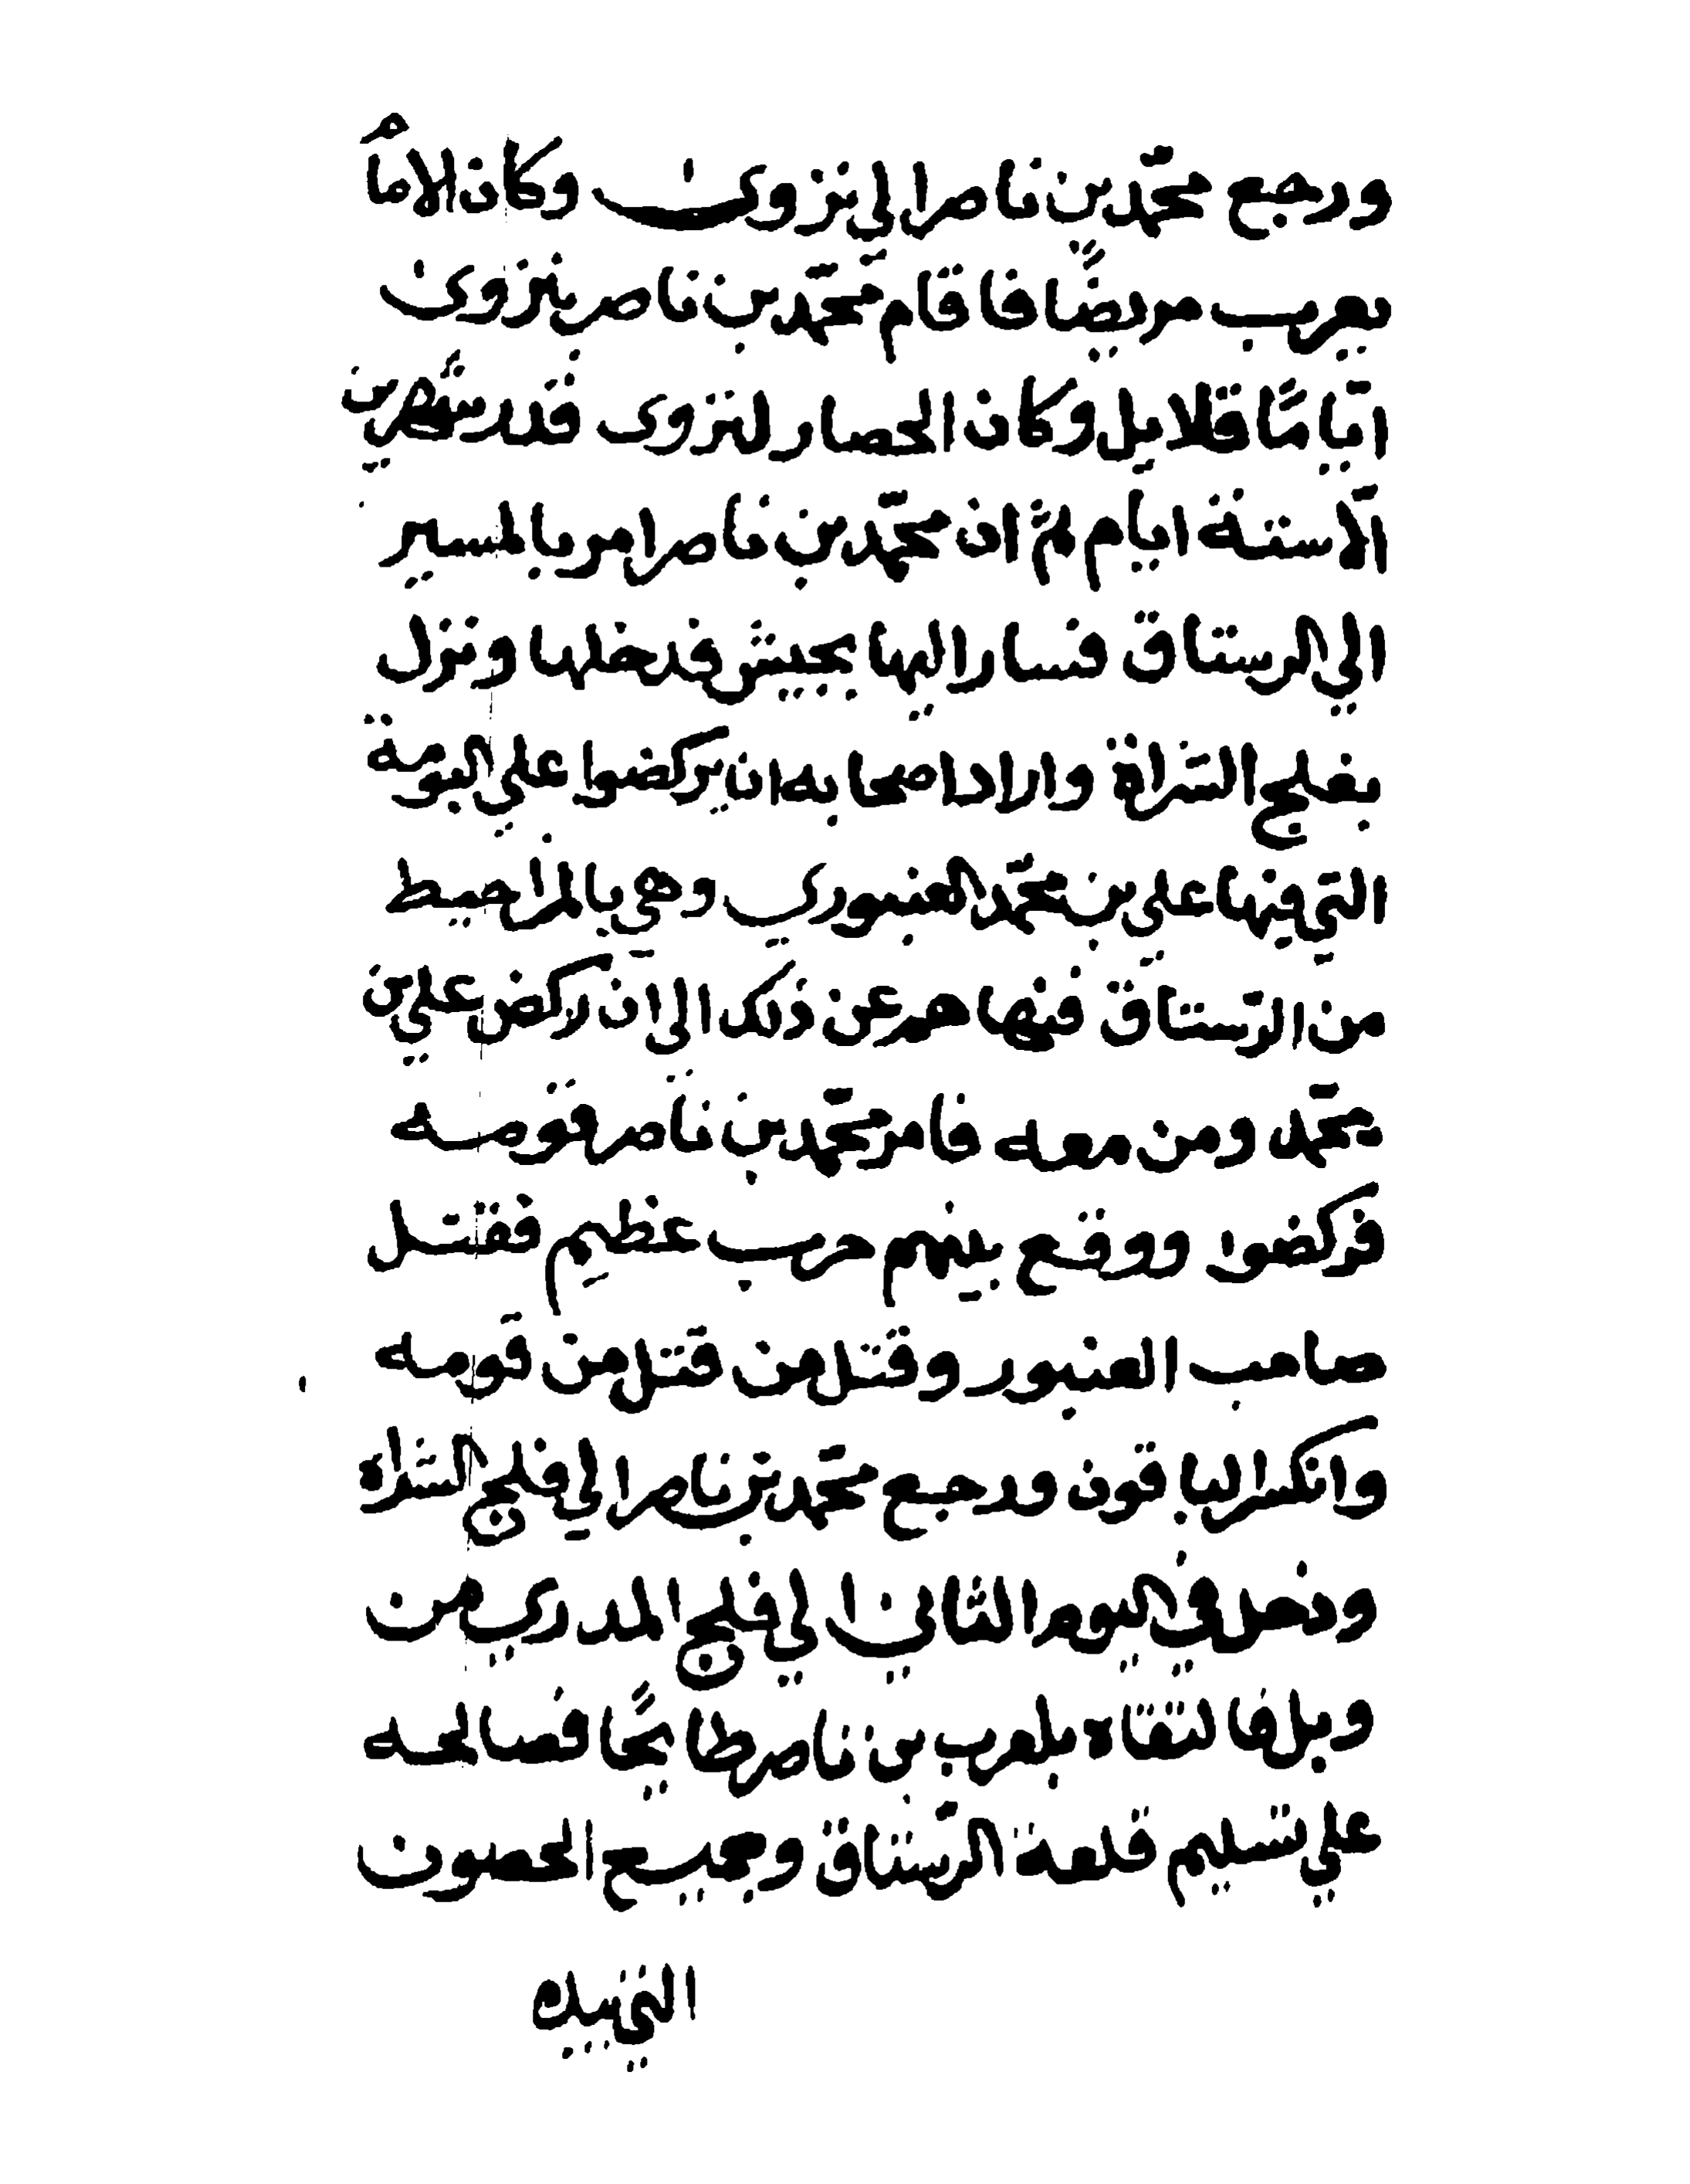 ورجع محمّد بن ناصر الي نزوى وكان الامام
يعرب مريضًا فاقام محمّد بن ناصر بنزوى
ايّامًا قلايل وكان الحصار لنزوى قدر شهرين
الّا ستة ايام ثمّ ان محمّد بن ناصر امر بالمسير
الي الرستاق فسار اليها بجيش فدخلها ونزل
بفلج الشراة واراد اصحابه ان يركضوا علي البومة
التي فيها علي بن محمّد العنبوري وهي بالمراحيط
من الرّستاق فنهاهم عن ذلك الى ان ركض علي بن
محمّد ومن معه فامر محمّد بن ناصر قومه
فركضوا ووقع بينهم حرب عظيم فقتل
صاحب العنبور وقتل من قتل من قومه
وانكسر الباقون ورجع محمّد بن ناصر الي فلج الشراة
ودخل في اليوم الثاني الي فلج المدري من
وبل فالتقاه بلعرب بن ناصر طايحًا فصالحه
علي تسليم قلعة الرّستاق وجميع الحصون
التي بيده